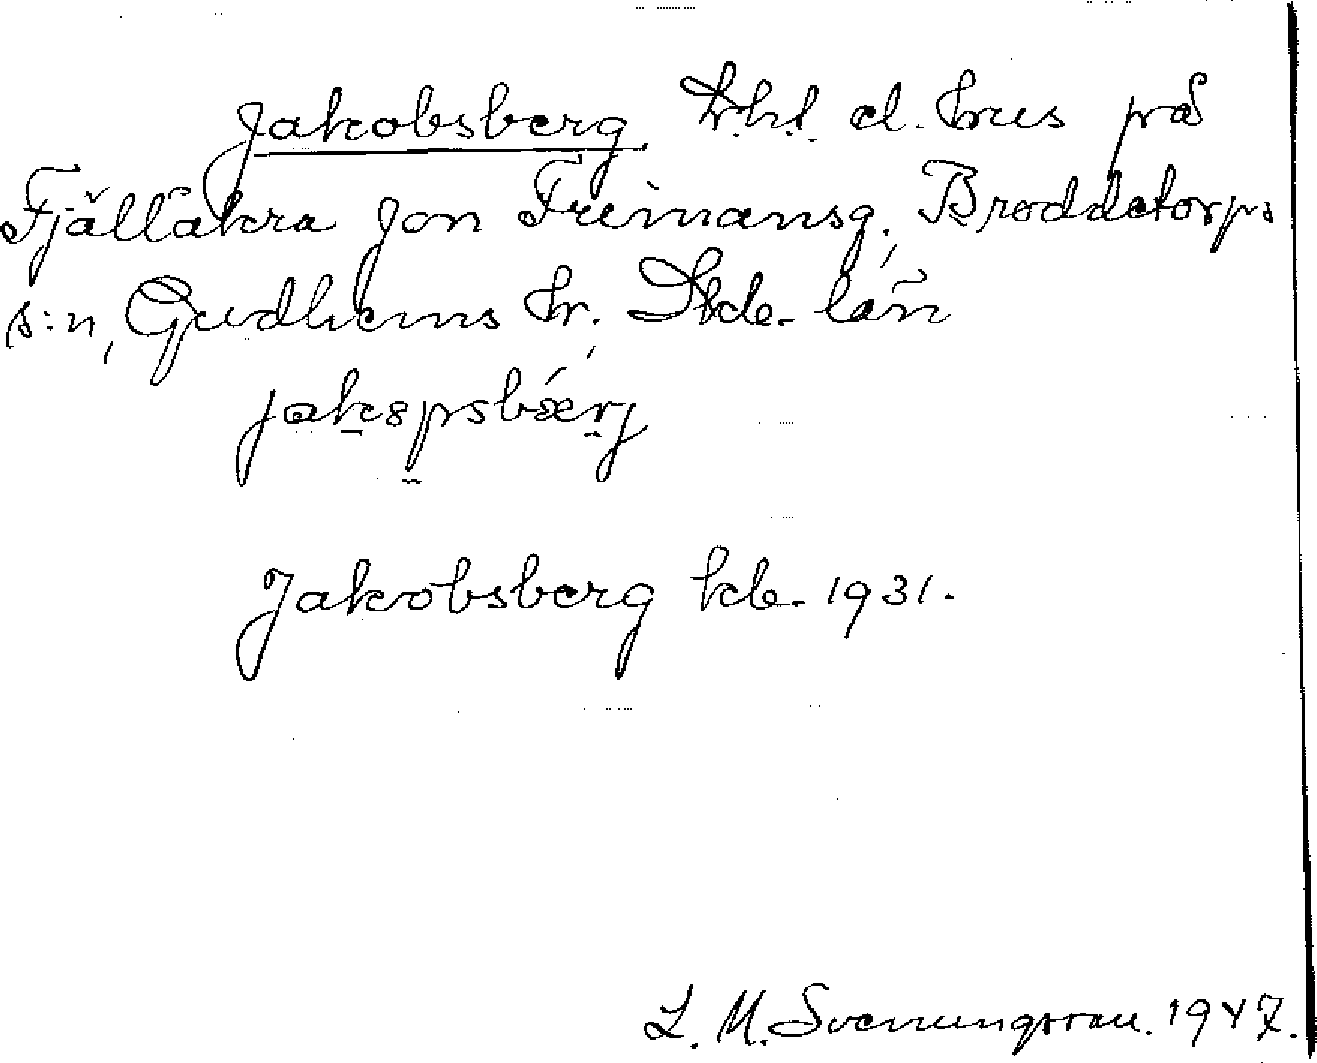 Jakobsberg, t.h.l. el. hus på
Fjällåkra Jon Frimansg., Broddetorps
s:n, Gudhems hr. Skbg. län
jakspsbǽrj
Jakobsberg kb. 1931.
L. M. Svenungsson. 1947.